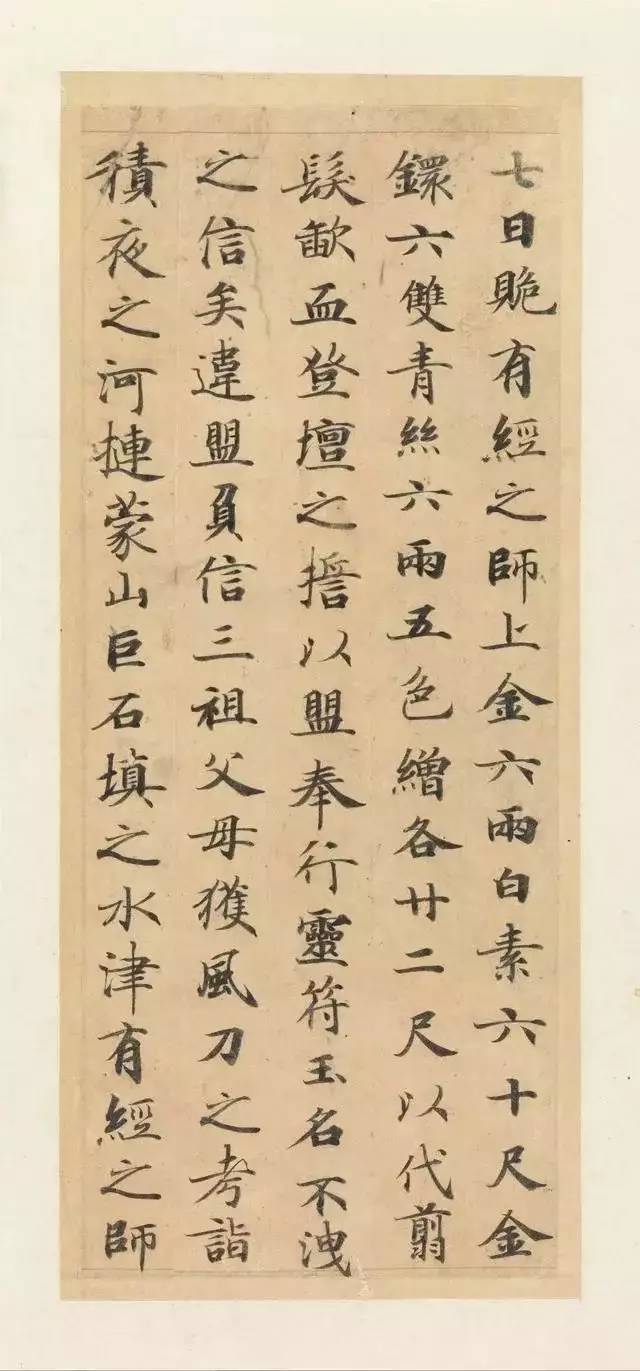 七日賘有經之師上金六兩白素六十尺金
鐶六雙青絲六兩五色繒各廿二尺以代翦
髮歃血登壇之擔以盟奉行靈符玉名不洩
之信矣違盟負信三祖父母獲風刀之考詣
積夜之河摙蒙山巨石填之水津有經之師